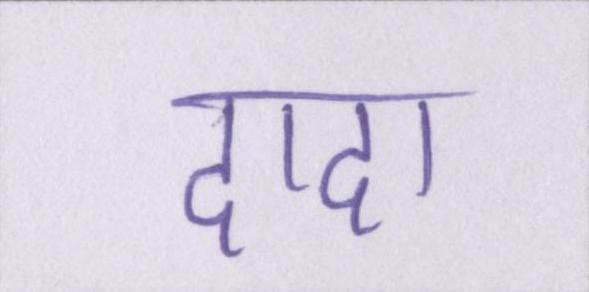 दादा